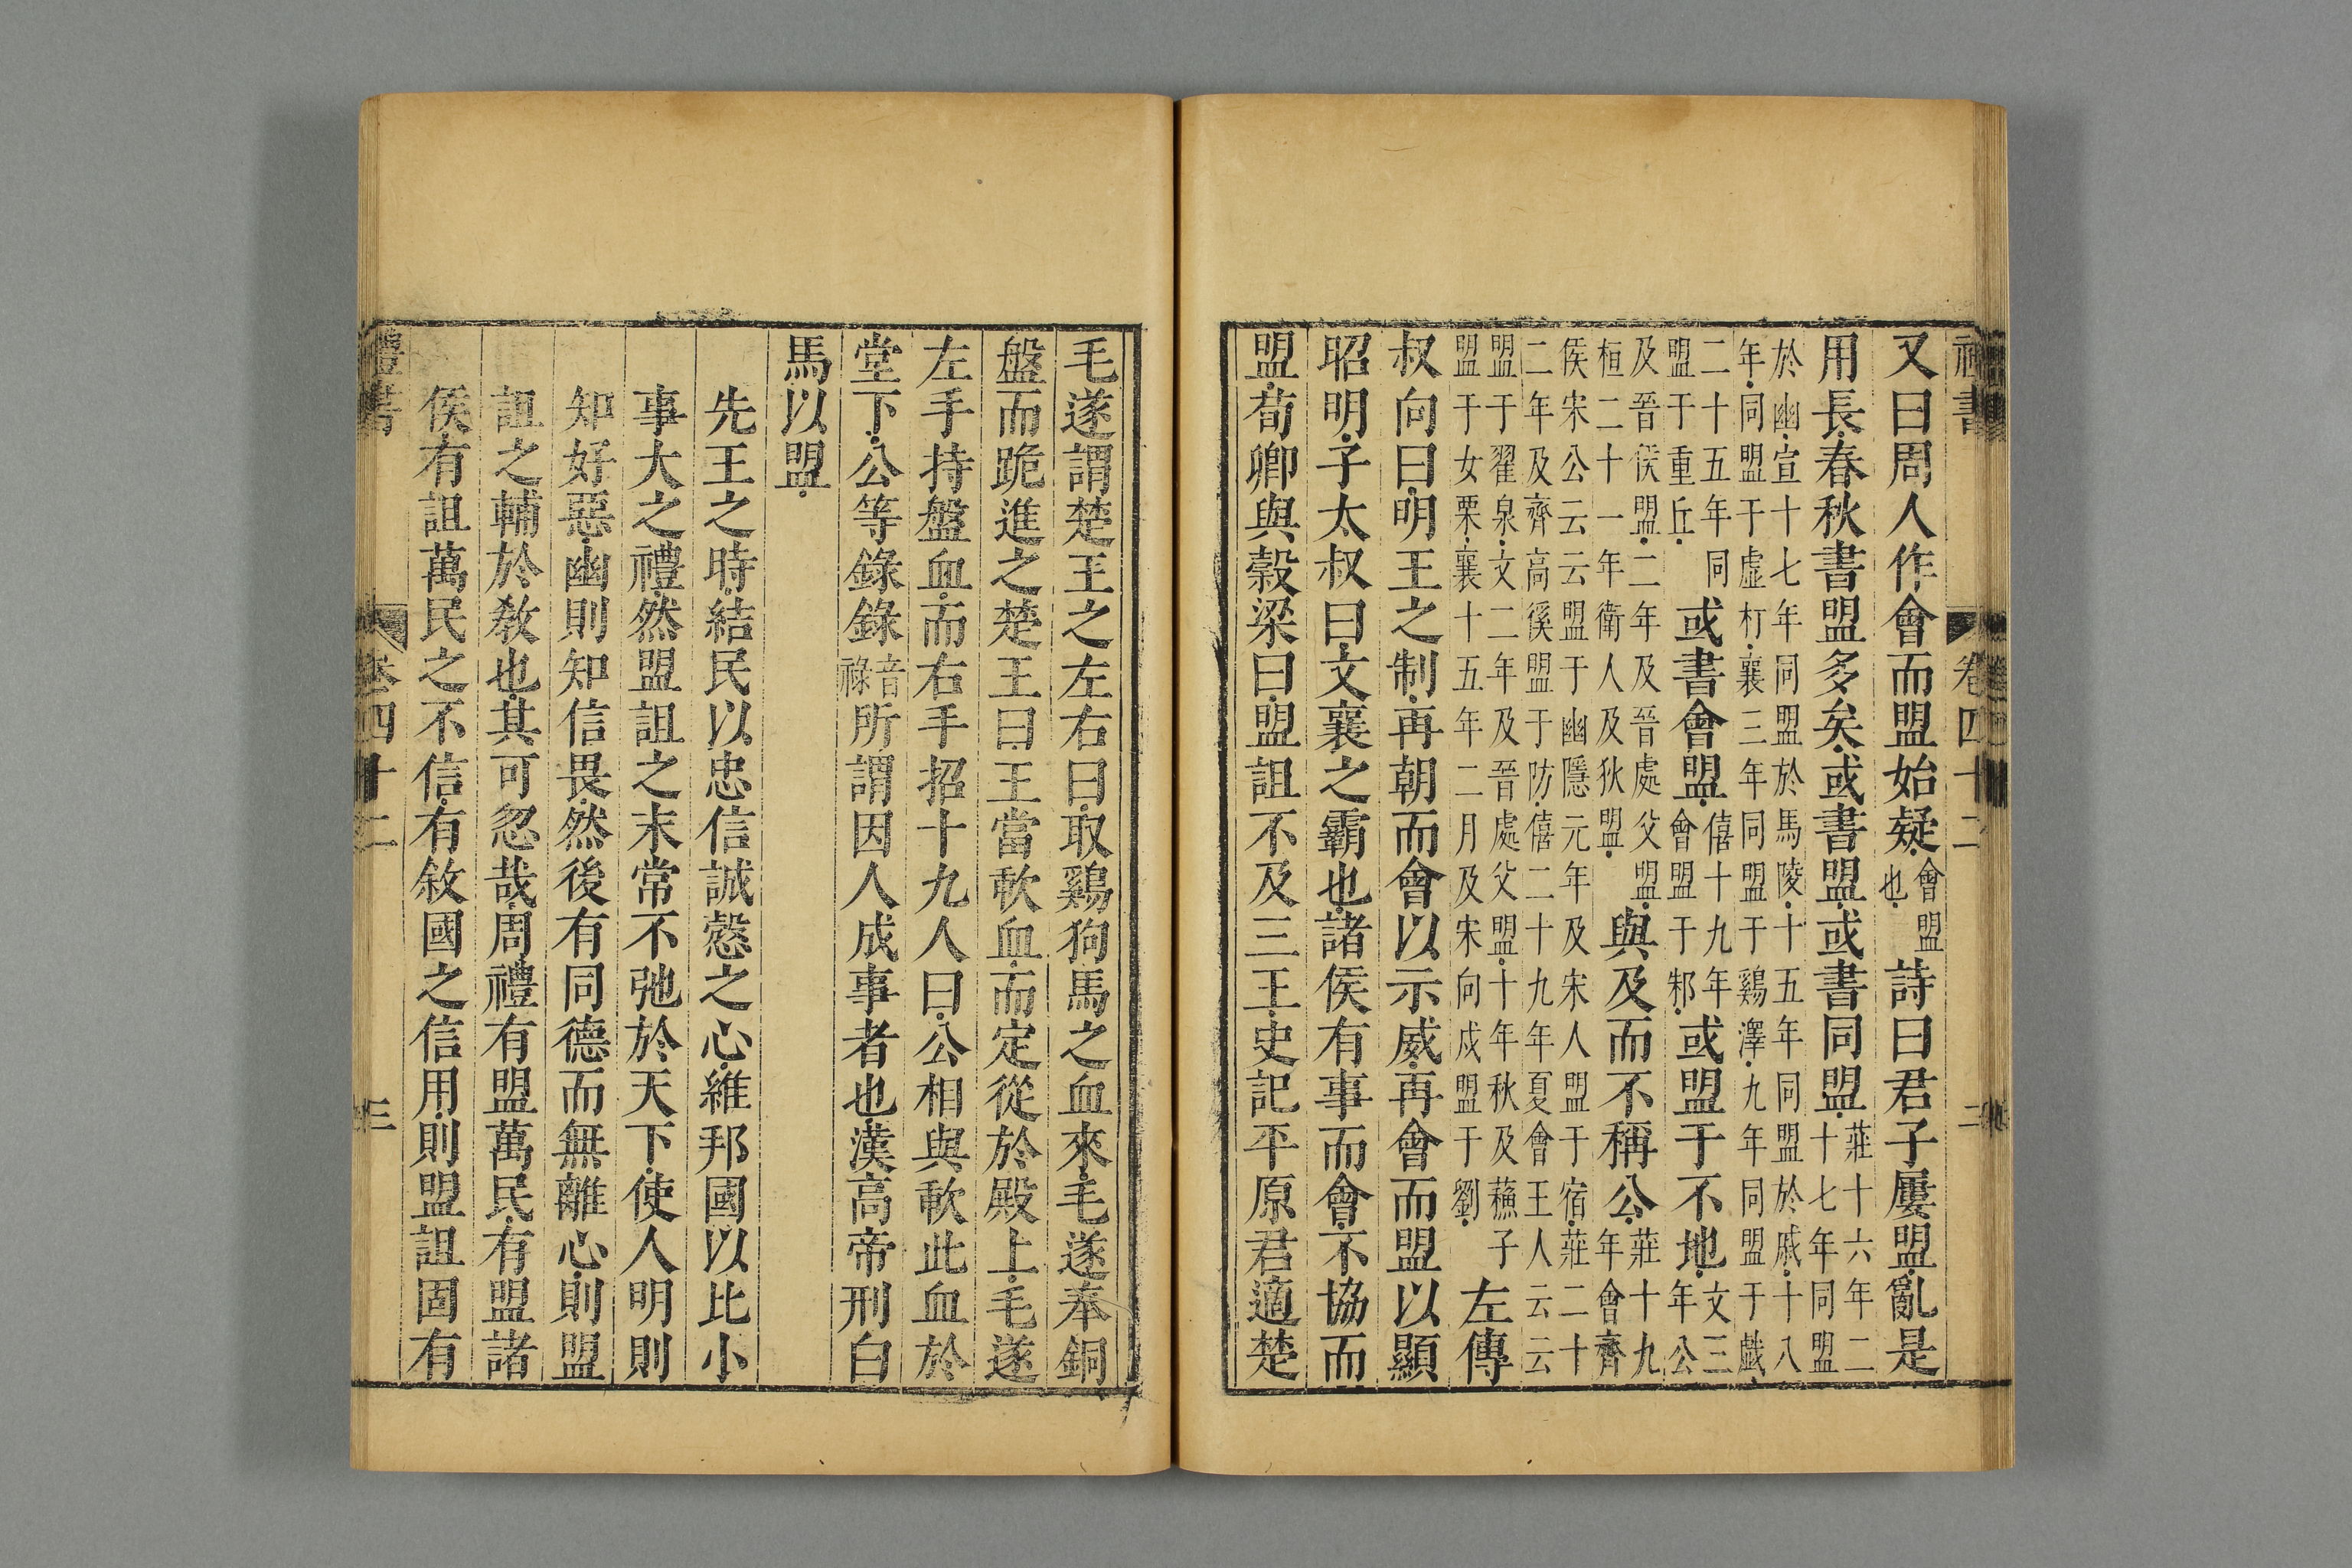 禮書 卷四十二 二
又曰周人作會而盟始疑會盟也詩曰君子屢盟亂是
用長春秋書盟多矣或書盟或書同盟莊十六年二十七年同盟
於幽宣十七年同盟於馬陵十五年同盟於戚十八年同盟于虛朾襄三年同盟于鷄澤九年同盟于戲
二十五年同盟于重丘或書會盟僖十九年會盟于邾或盟于不地文三年公
及晉侯盟二年及晉處父盟桓二十一年衛人及狄盟與及而不稱公莊十九年會齊
侯宋公云云盟于幽隱元年及宋人盟于宿莊二十二年及齊高徯盟于防僖二十九年夏會王人云云
盟于翟泉文二年及晉處父盟十年秋及蘇子盟于女栗襄十五年二月及宋向戌盟于劉左傳
叔向曰明王之制再朝而會以示威再會而盟以顯
昭明子太叔曰文襄之霸也諸侯有事而會不協而
盟荀卿與穀梁曰盟詛不及三王史記平原君適楚
毛遂謂楚王之左右曰取鷄狗馬之血來毛遂奉銅
盤而跪進之楚王曰王當歃血而定從於殿上毛遂
左手持盤血而右手招十九人曰公相與歃此血於
堂下公等錄錄音祿所謂因人成事者也漢高帝刑白
馬以盟
先王之時結民以忠信誠慤之心維邦國以比小
事大之禮然盟詛之末常不弛於天下使人明則
知好惡幽則知信畏然後有同德而無離心則盟
詛之輔於教也其可忽哉周禮有盟萬民有盟諸
侯有詛萬民之不信有敘國之信用則盟詛固有
禮書 卷四十二 三